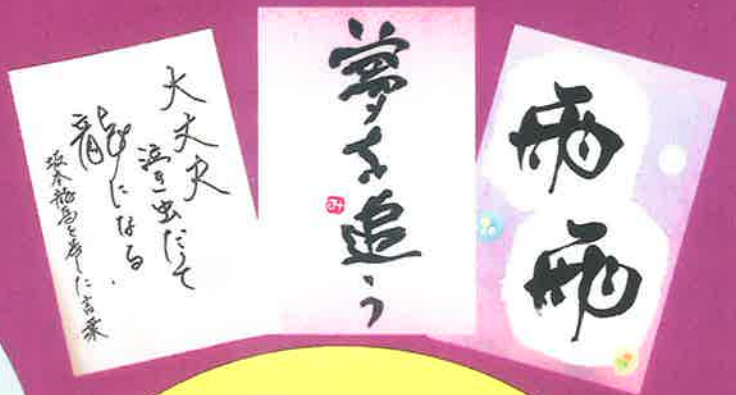 大丈夫
泣き虫だって
龍になる
坂本龍馬を表した言葉
夢を追う